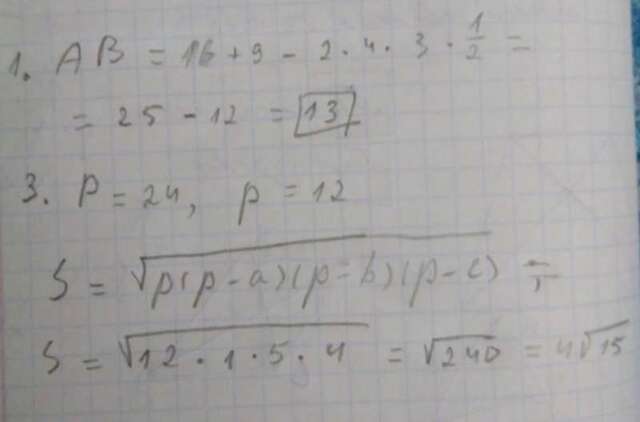 1. AB = 16 + 9 - 2 · 4 · 3 · 1/2 =
= 25 - 12 = 13
3. P = 24, p = 12
S = √p(p-a)(p-b)(p-c) =
S = √12 · 1 · 5 · 4 = √240 = 4√15